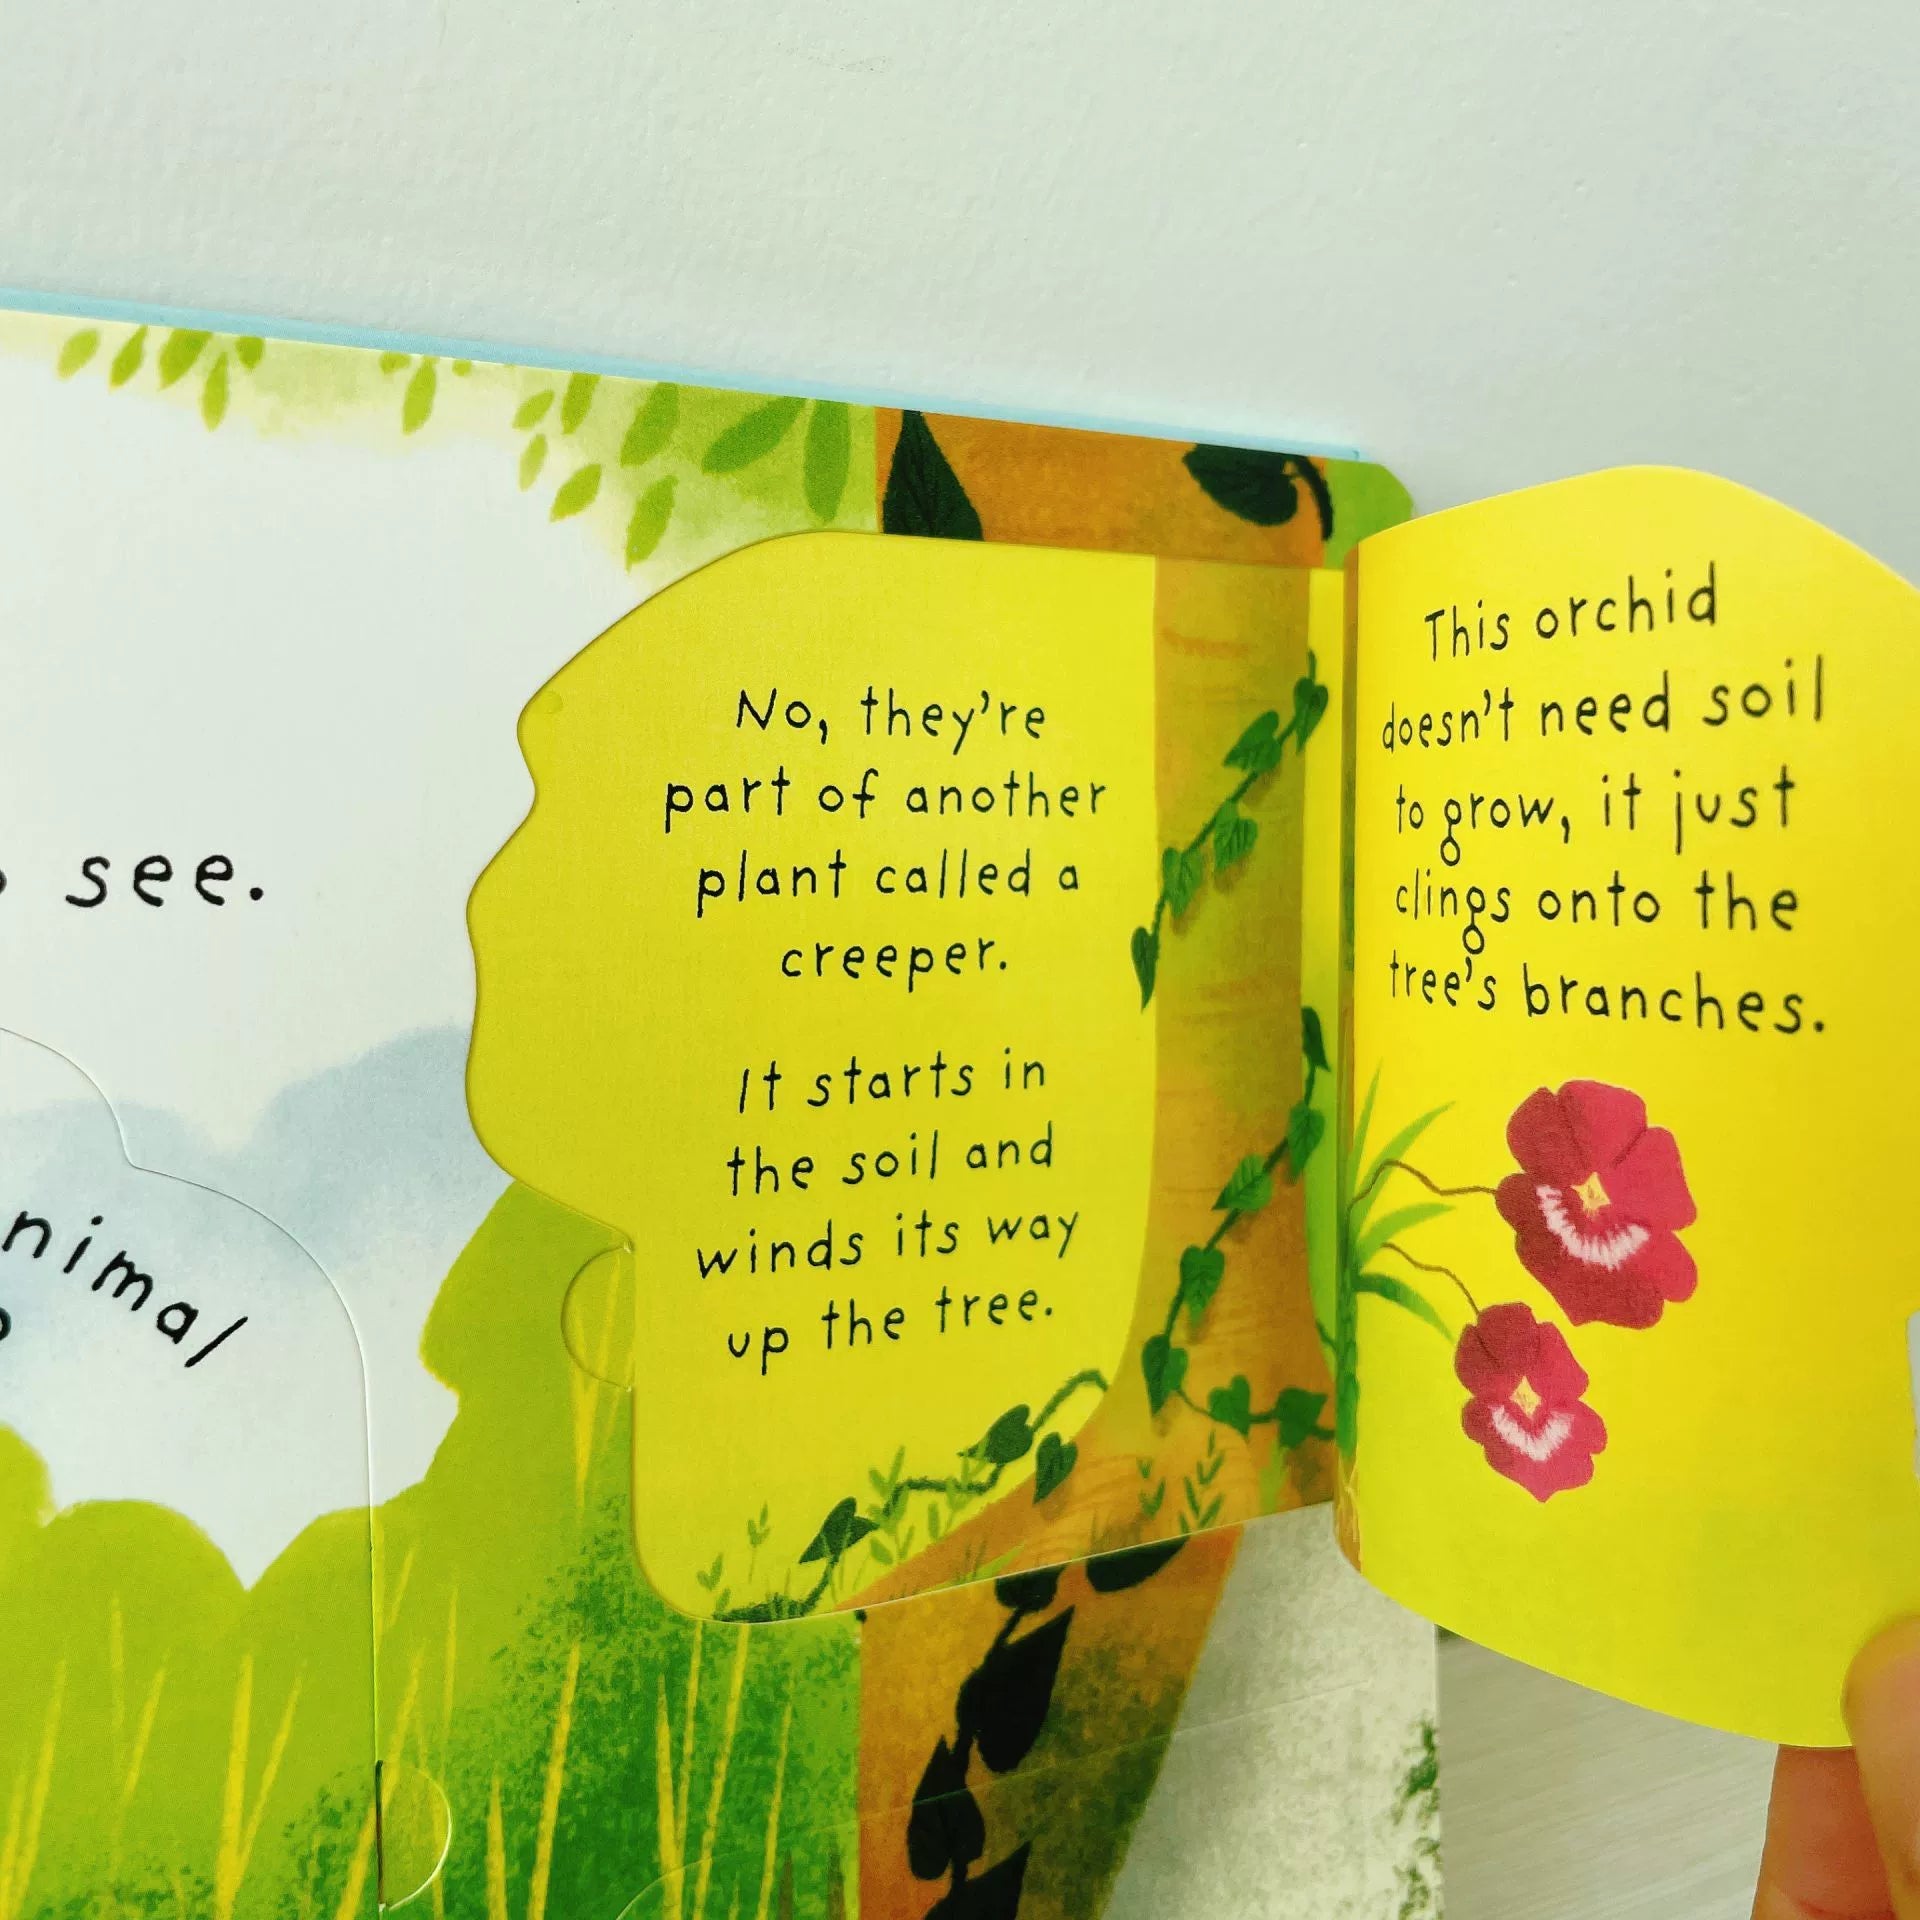 see.
nimal
No, they're
part of another
plant called a
creeper.
It starts in
the soil and
winds its way
up the tree.
This orchid
doesn't need soil
to grow, it just
clings onto the
tree's branches.